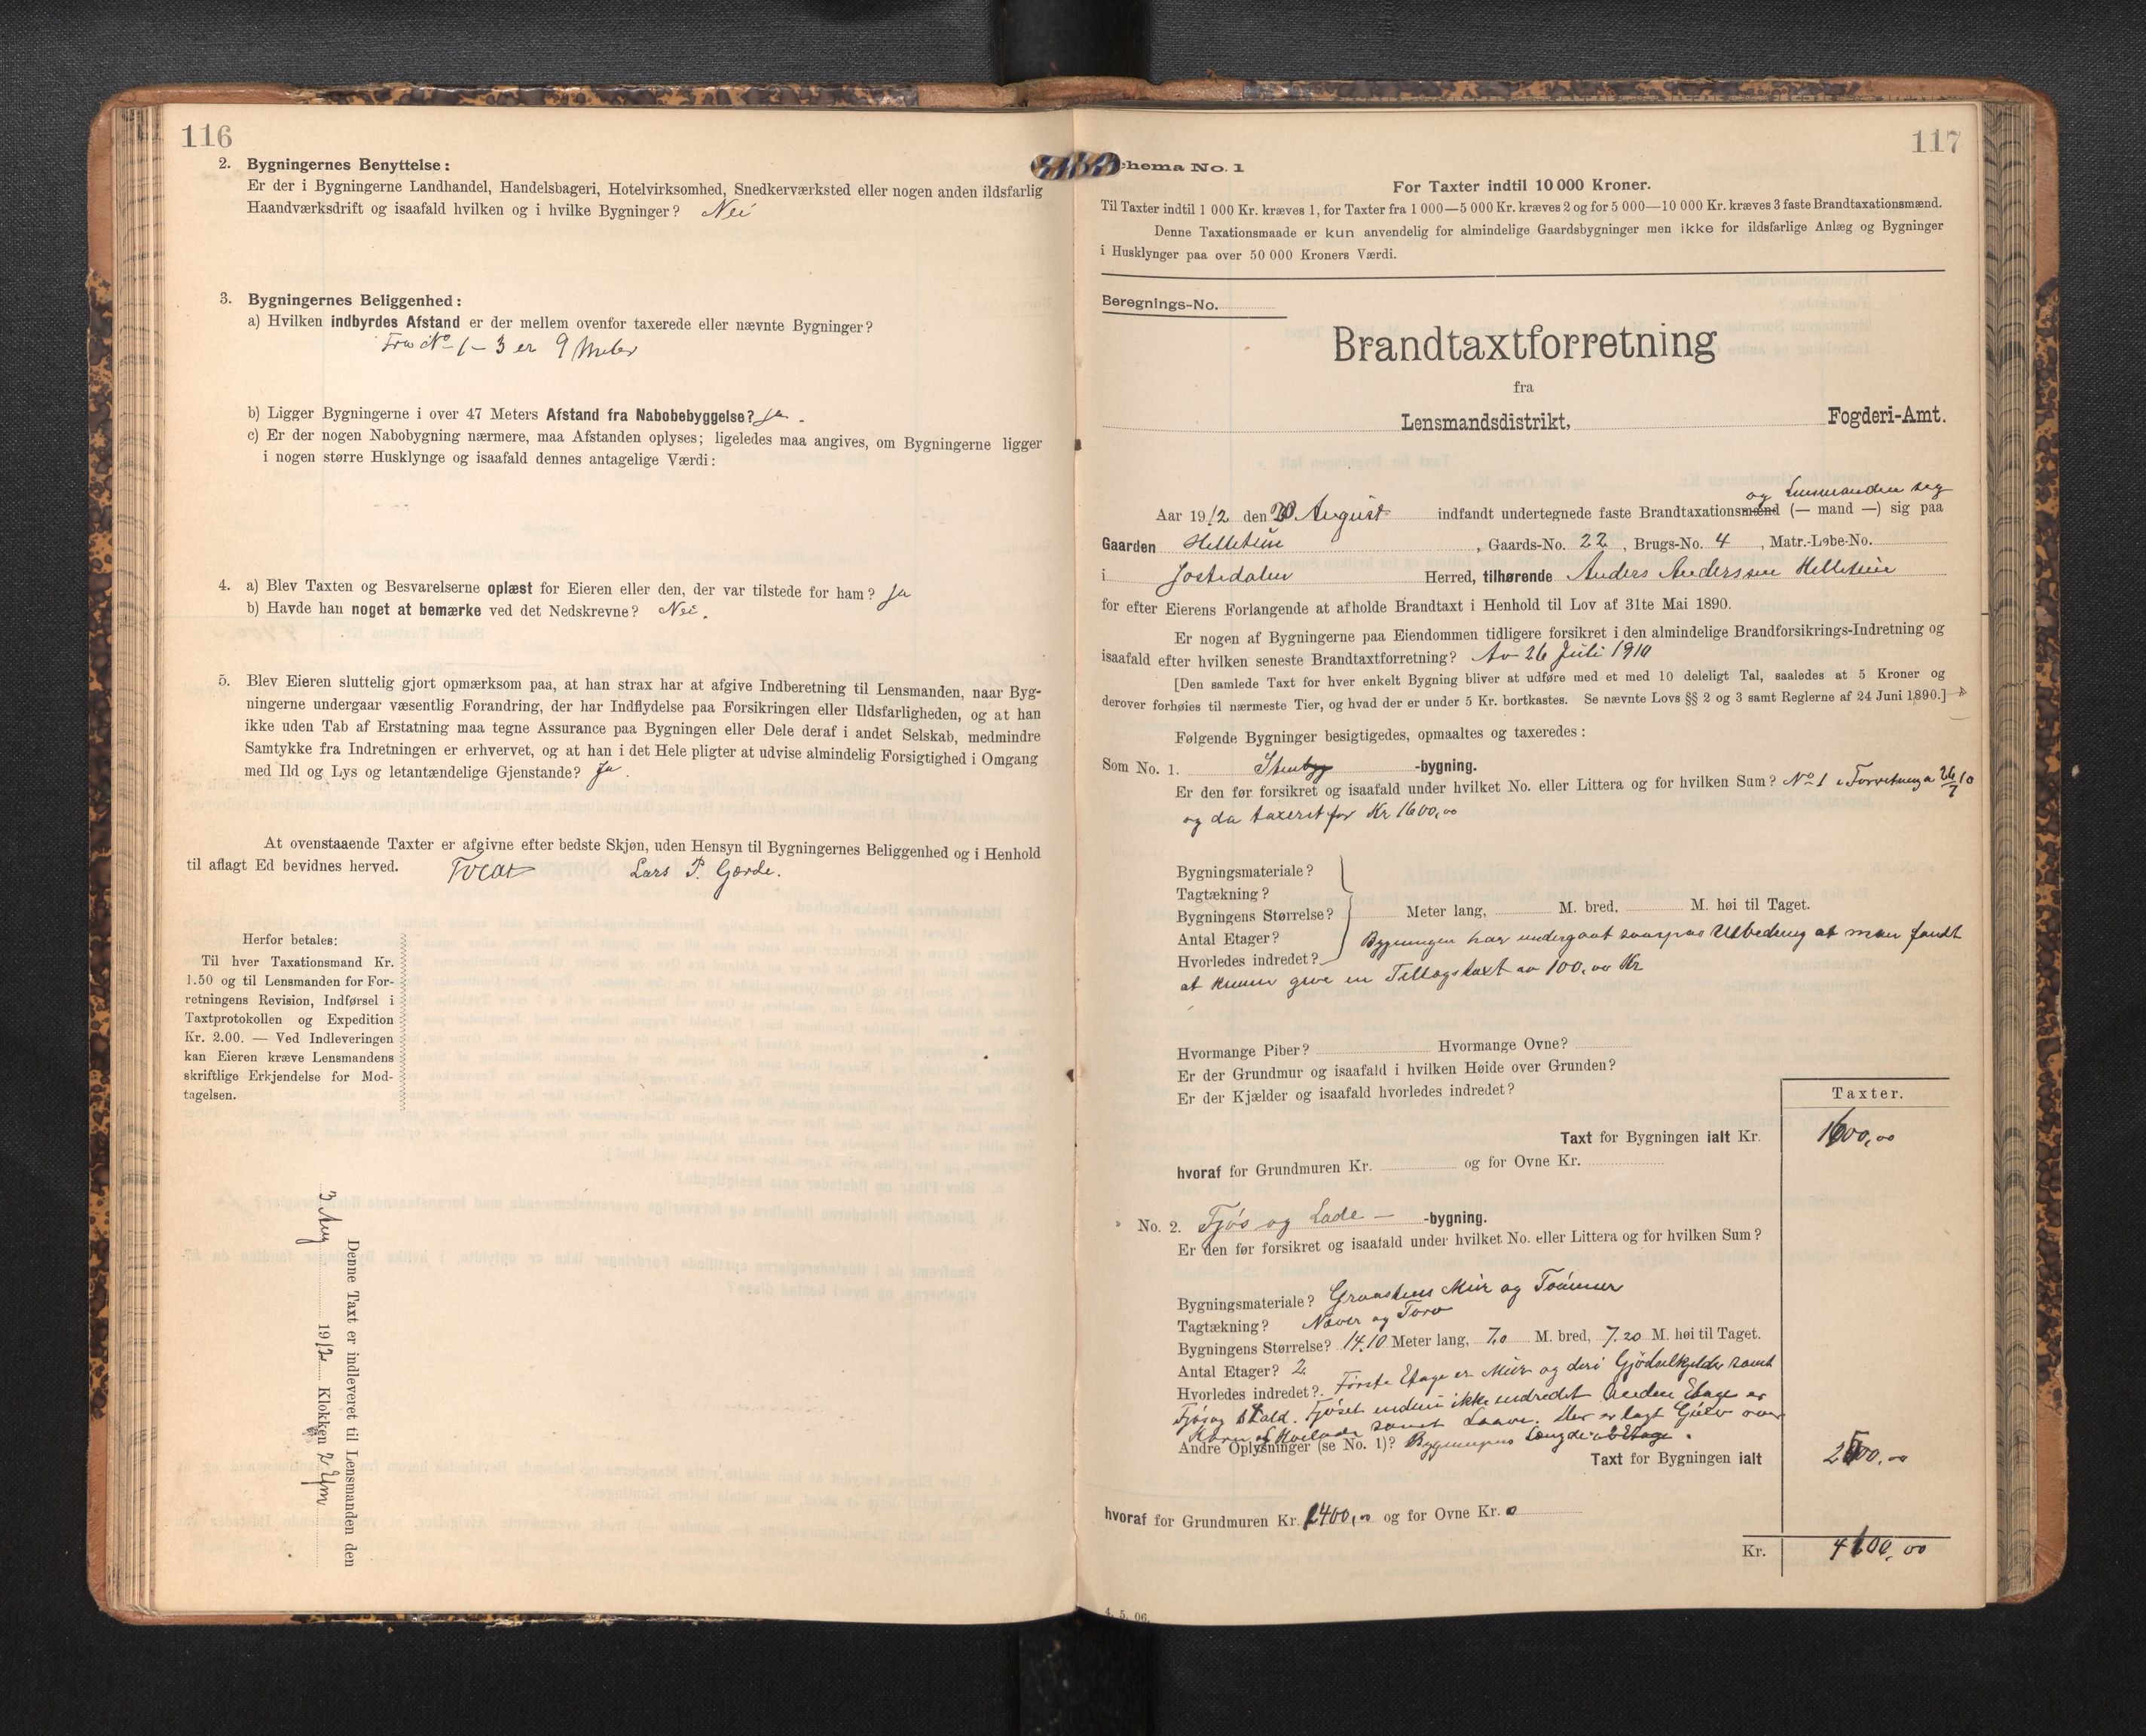 116
2. Bygningernes Benyttelse:
Er der i Bygningerne Landhandel, Handelsbageri, Hotelvirksomhed, Snedkerværksted eller nogen anden ildsfarlig
Haandværksdrift og isaafald hvilken og i hvilke Bygninger? Nei
3. Bygningernes Beliggenhed:
a) Hvilken indbyrdes Afstand er der mellem ovenfor taxerede eller nævnte Bygninger?
Fra No 1 – 3 er 9 Meter
b) Ligger Bygningerne i over 47 Meters Afstand fra Nabobebyggelse? Ja.
c) Er der nogen Nabobygning nærmere, maa Afstanden oplyses; ligeledes maa angives, om Bygningerne ligger
i nogen større Husklynge og isaafald dennes antagelige Værdi:
4. a) Blev Taxten og Besvarelserne oplæst for Eieren eller den, der var tilstede for ham? Ja
b) Havde han noget at bemærke ved det Nedskrevne? Nei.
5. Blev Eieren sluttelig gjort opmærksom paa, at han strax har at afgive Indberetning til Lensmanden, naar Byg-
ningerne undergaar væsentlig Forandring, der har Indflydelse paa Forsikringen eller Ildsfarligheden, og at han
ikke uden Tab af Erstatning maa tegne Assurance paa Bygningen eller Dele deraf i andet Selskab, medmindre
Samtykke fra Indretningen er erhvervet, og at han i det Hele pligter at udvise almindelig Forsigtighed i Omgang
med Ild og Lys og letantændelige Gjenstande? Ja.
At ovenstaaende Taxter er afgivne efter bedste Skjøn, uden Hensyn til Bygningernes Beliggenhed og i Henhold
til aflagt Ed bevidnes herved. Lars P. Gærde.
Herfor betales:
Til hver Taxationsmand Kr.
1.50 og til Lensmanden for For-
retningens Revision, Indførsel i
Taxtprotokollen og Expedition
Kr. 2.00. — Ved Indleveringen
kan Eieren kræve Lensmandens
skriftlige Erkjendelse for Mod-
tagelsen.
Denne Taxt er indleveret til Lensmanden den
3 Aug 1912 Klokken 2
117
Schema No. 1
For Taxter indtil 10 000 Kroner.
Til Taxter indtil 1 000 Kr. kræves 1, for Taxter fra 1 000—5 000 Kr. kræves 2 og for 5 000—10 000 Kr. kræves 3 faste Brandtaxationsmænd.
Denne Taxationsmaade er kun anvendelig for almindelige Gaardsbygninger men ikke for ildsfarlige Anlæg og Bygninger
i Husklynger paa over 50 000 Kroners Værdi.
Beregnings-No.
Brandtaxtforretning
fra
Lensmandsdistrikt, Fogderi-Amt.
og Lensmanden seg
Aar 1912 den 20 August indfandt undertegnede faste Brandtaxationsmænd (— mand —) sig paa
Gaarden Helletun, Gaards-No. 22, Brugs-No. 4, Matr.-Løbe-No.
i Jostedalen Herred, tilhørende Anders Anderssen Helletun
for efter Eierens Forlangende at afholde Brandtaxt i Henhold til Lov af 31te Mai 1890.
Er nogen af Bygningerne paa Eiendommen tidligere forsikret i den almindelige Brandforsikrings-Indretning og
isaafald efter hvilken seneste Brandtaxtforretning? Av 26 Juli 1910
[Den samlede Taxt for hver enkelt Bygning bliver at udføre med et med 10 deleligt Tal, saaledes at 5 Kroner og
derover forhøies til nærmeste Tier, og hvad der er under 5 Kr. bortkastes. Se nævnte Lovs §§ 2 og 3 samt Reglerne af 24 Juni 1890.]
Følgende Bygninger besigtigedes, opmaaltes og taxeredes:
Som No. 1. Stuebyg -bygning.
Er den før forsikret og isaafald under hvilket No. eller Littera og for hvilken Sum? No 1 i Forretning a 26/7 10
og da taxeret for Kr 1600,00
Bygningsmateriale?
Tagtækning?
Bygningens Størrelse? Meter lang, M. bred, M. høi til Taget.
Antal Etager?
Bygningen har undergaat saapas Utbedring at man fandt
Hvorledes indredet?
at kunne give en Tillægstaxt av 100,00 Kr
Hvormange Piber? Hvormange Ovne?
Er der Grundmur og isaafald i hvilken Høide over Grunden?
Er der Kjælder og isaafald hvorledes indredet?
Taxter.
Taxt for Bygningen ialt Kr. 1600,00
hvoraf for Grundmuren Kr. og for Ovne Kr.
No. 2. Fjøs og Lade — -bygning.
Er den før forsikret og isaafald under hvilket No. eller Littera og for hvilken Sum?
Bygningsmateriale? Graastens Mur og Tømmer
Tagtækning? Næver og Torv
Bygningens Størrelse? 14.10 Meter lang, 7,0 M. bred, 7.20 M. høi til Taget.
Antal Etager? 2
Hvorledes indredet? Første Etage er Mur og deri Gjødselkjelder samt
Fjøs og Stald. Fjøset endnu ikke indredet Anden Etage er
Korn og Høelade samt Laave. Der er lagt Gulv over
Andre Oplysninger (se No. 1)? Bygningens Længde i 2 Etage.
Taxt for Bygningen ialt 2500,00
hvoraf for Grundmuren Kr. 1400,00 og for Ovne Kr. 0
Kr. 4100,00
4. 5. 06.